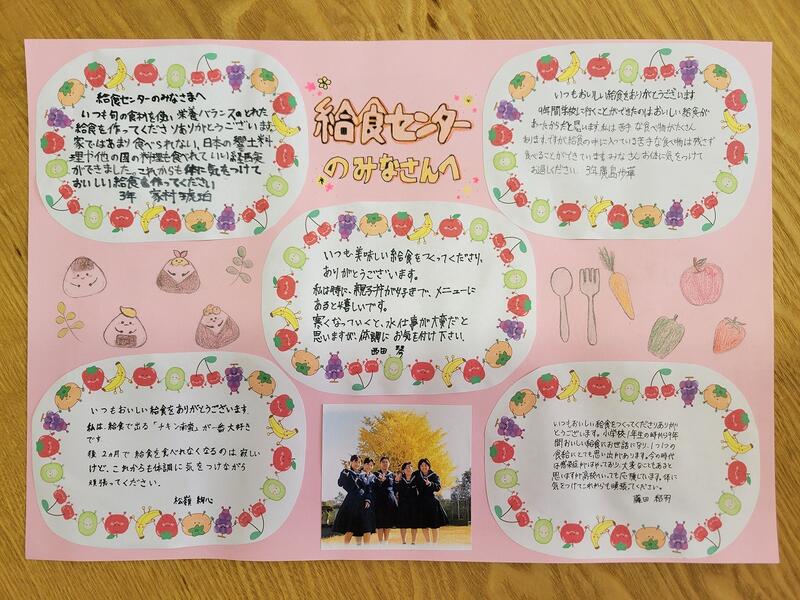 給食センター
のみなさんへ
給食センターのみなさまへ
いつも旬の食材を使い栄養バランスのとれた
給食を作ってくださりありがとうございます。
家ではあまり食べられない、日本の郷土料
理や他の国の料理も食べれていい経験
ができました。これからも体に気をつけて
おいしい給食を作ってください
3年
いつもおいしい給食をありがとうございます
9年間学校に行くことができたのはおいしい給食が
あったからだと思います。私は苦手な食べ物がたくさん
ありますが給食の中に入っている苦手な食べ物は残さず
食べることができています。みなさんお体に気をつけて
お過しください。3年
いつも美味しい給食をつくってくださり、
ありがとうございます。
私は特に、親子丼が好きで、メニューに
あると嬉しいです。
寒くなっていくと、水仕事が大変だと
思いますが、体調にお気を付け下さい。
西田 琴
いつもおいしい給食をありがとうございます。
私は、給食で出る「チキン南蛮」が一番大好き
です
後2カ月で給食を食べれなくなるのは寂しい
けど、これからも体調に気をつけながら
頑張ってください。
いつもおいしい給食をつくってくださりありが
とうございます。小学校1年生の時から9年
間おいしい給食にお世話になり、1つ1つの
食給にとても思い出があります。今の時代
は感染症がはやっており、大変なこともあると
思いますが高校へいっても応援しています。体に
気をつけてこれからも頑張ってください。
藤田